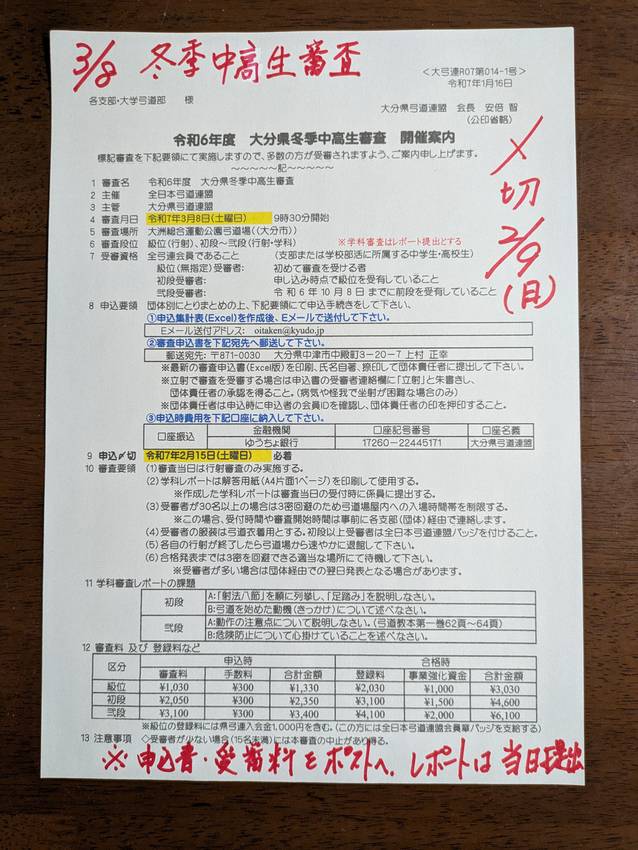 3/8 冬季中高生審査
<大弓連R07第014-1号>
令和7年1月16日
各支部・大学弓道部 様
大分県弓道連盟 会長 安倍 智
(公印省略)
〆切 2/9(日)
令和6年度 大分県冬季中高生審査 開催案内
標記審査を下記要領にて実施しますので、多数の方が受審されますよう、ご案内申し上げます。
~~~~~記~~~~~
1 審査名 令和6年度 大分県冬季中高生審査
2 主催 全日本弓道連盟
3 主管 大分県弓道連盟
4 審査月日 令和7年3月8日(土曜日) 9時30分開始
5 審査場所 大洲総合運動公園弓道場((大分市))
6 審査段位 級位(行射)、初段~弐段(行射・学科) ※学科審査はレポート提出とする
7 受審資格 全弓連会員であること (支部または学校部活に所属する中学生・高校生)
級位(無指定)受審者: 初めて審査を受ける者
初段受審者: 申し込み時点で級位を有していること
弐段受審者: 令和6年10月8日までに前段を有していること
8 申込要領 団体別にとりまとめの上、下記要領にて申込手続きをして下さい。
①申込集計表(Excel)を作成後、Eメールで送付して下さい。
Eメール送付アドレス: oitaken@kyudo.jp
②審査申込書を下記宛先へ郵送して下さい。
郵送宛先: 〒871-0030 大分県中津市中殿町3-20-7 上村 正幸
※最新の審査申込書(Excel版)を印刷、氏名自署、捺印して団体責任者に提出して下さい。
※立射で審査を受審する場合は申込書の受審者連絡欄に「立射」と朱書きし、
団体責任者の承認を得ること。(病気や怪我で坐射が困難な場合のみ)
※団体責任者は申込時に申込者の会員IDを確認し、団体責任者の印を押印すること。
③申込時費用を下記口座に納入して下さい。
口座振込 金融機関 口座記号番号 口座名義
ゆうちょ銀行 17260-22445171 大分県弓道連盟
9 申込〆切 令和7年2月15日(土曜日) 必着
10 審査要領 (1)審査当日は行射審査のみ実施する。
(2)学科レポートは解答用紙(A4片面1ページ)を印刷して使用する。
※作成した学科レポートは審査当日の受付時に係員に提出する。
(3)受審者が30名以上の場合は3密回避のため弓道場屋内への入場時間帯を制限する。
※この場合、受付時間や審査開始時間は事前に各支部(団体)経由で連絡します。
(4)受審者の服装は弓道衣着用とする。初段以上受審者は全日本弓道連盟バッジを付けること。
(5)各自の行射が終了したら弓道場から速やかに退館して下さい。
(6)合格発表までは3密を回避できる適当な場所にて待機して下さい。
※受審者が多い場合は団体経由での翌日発表となる場合があります。
11 学科審査レポートの課題
初段 A:「射法八節」を順に列挙し、「足踏み」を説明しなさい。
B:弓道を始めた動機(きっかけ)について述べなさい。
弐段 A:動作の注意点について説明しなさい。(弓道教本第一巻62頁~64頁)
B:危険防止について心掛けていることを述べなさい。
12 審査料 及び 登録料など
区分 申込時 合格時
審査料 手数料 合計金額 登録料 事業強化資金 合計金額
級位 ¥1,030 ¥300 ¥1,330 ¥2,030 ¥1,000 ¥3,030
初段 ¥2,050 ¥300 ¥2,350 ¥3,100 ¥1,500 ¥4,600
弐段 ¥3,100 ¥300 ¥3,400 ¥4,100 ¥2,000 ¥6,100
※級位の登録料には県弓連入会金1,000円を含む。(この方には全日本弓道連盟会員章バッジを支給する)
13 注意事項 ◇受審者が少ない場合(15名未満)には本審査の中止があり得る。
※申込書・受審料をポストへ。レポートは当日提出